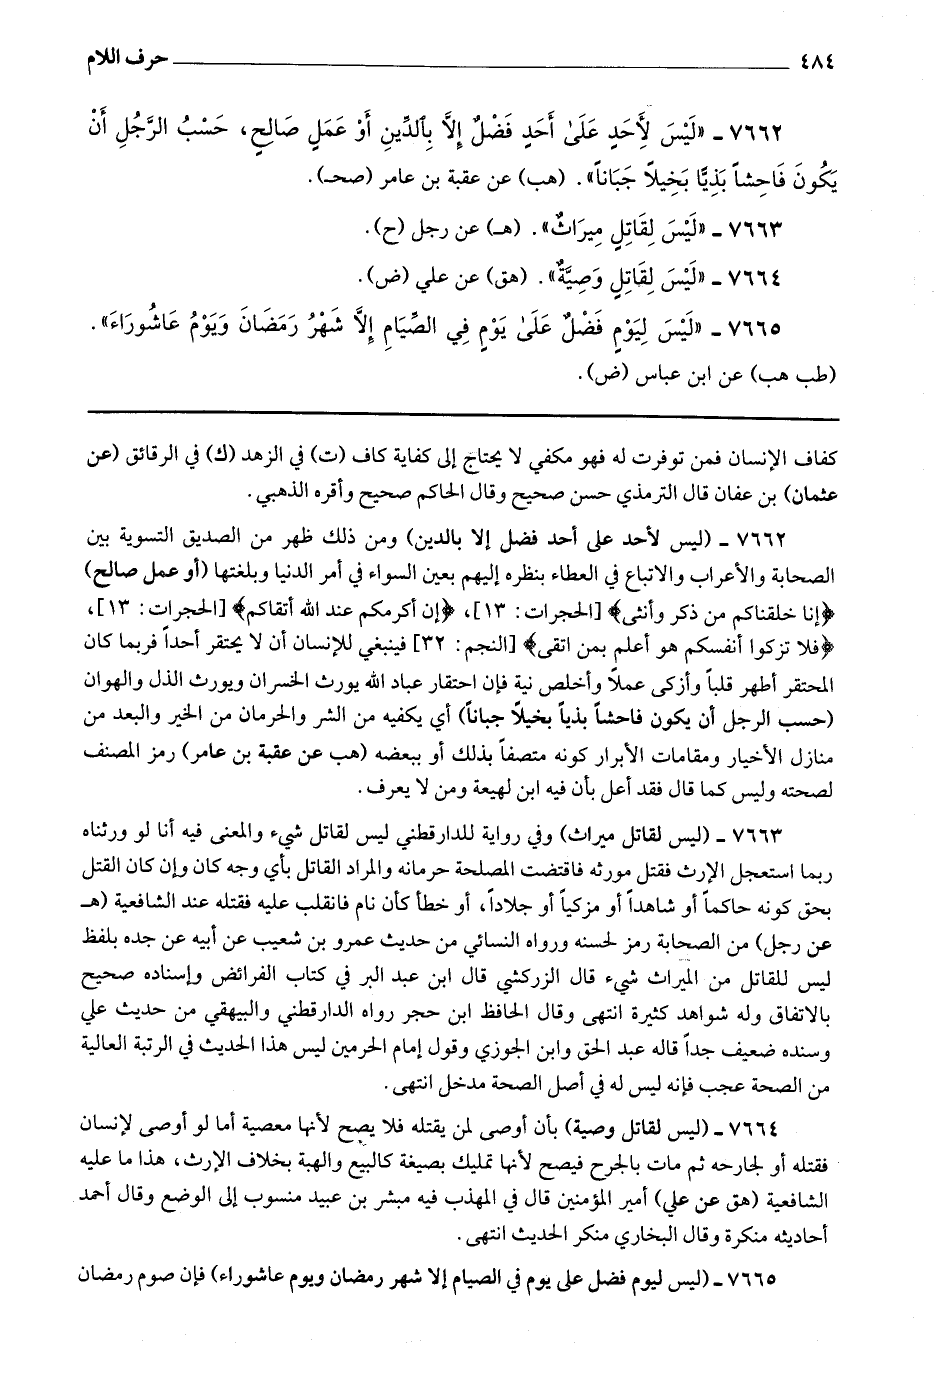 ٤٨٤ حرف اللام
٧٦٦٢ ـ «لَيْسَ لِأَحَدٍ عَلَىٰ أَحَدٍ فَضْلٌ إِلَّا بِٱلدِّينِ أَوْ عَمَلٍ صَالِحٍ، حَسْبُ الرَّجُلِ أَنْ
يَكُونَ فَاحِشاً بَذِيًّا بَخِيلاً جَبَاناً». (هب) عن عقبة بن عامر (صحـ).
٧٦٦٣ ـ «لَيْسَ لِقَاتِلٍ مِيرَاثٌ». (هـ) عن رجل (ح).
٧٦٦٤ ـ «لَيْسَ لِقَاتِلٍ وَصِيَّةٌ». (هق) عن علي (ض).
٧٦٦٥ ـ «لَيْسَ لِيَوْمٍ فَضْلٌ عَلَىٰ يَوْمٍ فِي الصِّيَامِ إِلَّا شَهْرُ رَمَضَانَ وَيَوْمُ عَاشُورَاءَ».
(طب هب) عن ابن عباس (ض).
كفاف الإنسان فمن توفرت له فهو مكفي لا يحتاج إلى كفاية كاف (ت) في الزهد (ك) في الرقائق (عن
عثمان) بن عفان قال الترمذي حسن صحيح وقال الحاكم صحيح وأقره الذهبي.
٧٦٦٢ ـ (ليس لأحد على أحد فضل إلا بالدين) ومن ذلك ظهر من الصديق التسوية بين
الصحابة والأعراب والاتباع في العطاء بنظره إليهم بعين السواء في أمر الدنيا وبلغتها (أو عمل صالح)
﴿إنا خلقناكم من ذكر وأنثى﴾ [الحجرات: ١٣]، ﴿إن أكرمكم عند الله أتقاكم﴾ [الحجرات: ١٣]،
﴿فلا تزكوا أنفسكم هو أعلم بمن اتقى﴾ [النجم: ٣٢] فينبغي للإنسان أن لا يحتقر أحداً فربما كان
المحتقر أطهر قلباً وأزكى عملاً وأخلص نية فإن احتقار عباد الله يورث الخسران ويورث الذل والهوان
(حسب الرجل أن يكون فاحشاً بذياً بخيلاً جباناً) أي يكفيه من الشر والحرمان من الخير والبعد من
منازل الأخيار ومقامات الأبرار كونه متصفاً بذلك أو ببعضه (هب عن عقبة بن عامر) رمز المصنف
لصحته وليس كما قال فقد أعل بأن فيه ابن لهيعة ومن لا يعرف.
٧٦٦٣ ـ (ليس لقاتل ميراث) وفي رواية للدارقطني ليس لقاتل شيء والمعنى فيه أنا لو ورثناه
ربما استعجل الإرث فقتل مورثه فاقتضت المصلحة حرمانه والمراد القاتل بأي وجه كان وإن كان القتل
بحق كونه حاكماً أو شاهداً أو مزكياً أو جلاداً، أو خطأ كأن نام فانقلب عليه فقتله عند الشافعية (هـ
عن رجل) من الصحابة رمز لحسنه ورواه النسائي من حديث عمرو بن شعيب عن أبيه عن جده بلفظ
ليس للقاتل من الميراث شيء قال الزركشي قال ابن عبد البر في كتاب الفرائض وإسناده صحيح
بالاتفاق وله شواهد كثيرة انتهى وقال الحافظ ابن حجر رواه الدارقطني والبيهقي من حديث علي
وسنده ضعيف جداً قاله عبد الحق وابن الجوزي وقول إمام الحرمين ليس هذا الحديث في الرتبة العالية
من الصحة عجب فإنه ليس له في أصل الصحة مدخل انتهى.
٧٦٦٤ ـ (ليس لقاتل وصية) بأن أوصى لمن يقتله فلا يصح لأنها معصية أما لو أوصى لإنسان
فقتله أو لجارحه ثم مات بالجرح فيصح لأنها تمليك بصيغة كالبيع والهبة بخلاف الإرث، هذا ما عليه
الشافعية (هق عن علي) أمير المؤمنين قال في المهذب فيه مبشر بن عبيد منسوب إلى الوضع وقال أحمد
أحاديثه منكرة وقال البخاري منكر الحديث انتهى.
٧٦٦٥ ـ (ليس ليوم فضل على يوم في الصيام إلا شهر رمضان ويوم عاشوراء) فإن صوم رمضان